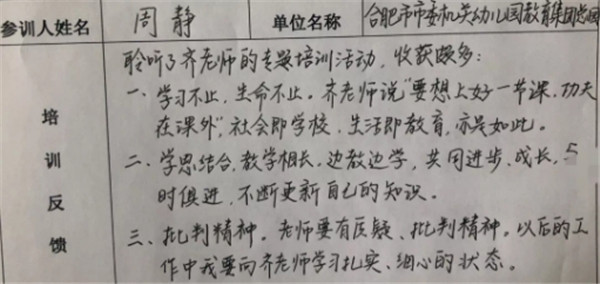 参训人姓名 周静 单位名称 合肥市市委机关幼儿园教育集团总园
聆听了齐老师的专题培训活动，收获颇多：
一、学习不止，生命不止。齐老师说“要想上好一节课，功夫
在课外”，社会即学校，生活即教育，亦是如此。
二、学思结合，教学相长，边教边学，共同进步、成长，与
时俱进，不断更新自己的知识。
三、批判精神。老师要有质疑、批判精神。以后的工
作中我要向齐老师学习扎实、细心的状态。
培训反馈